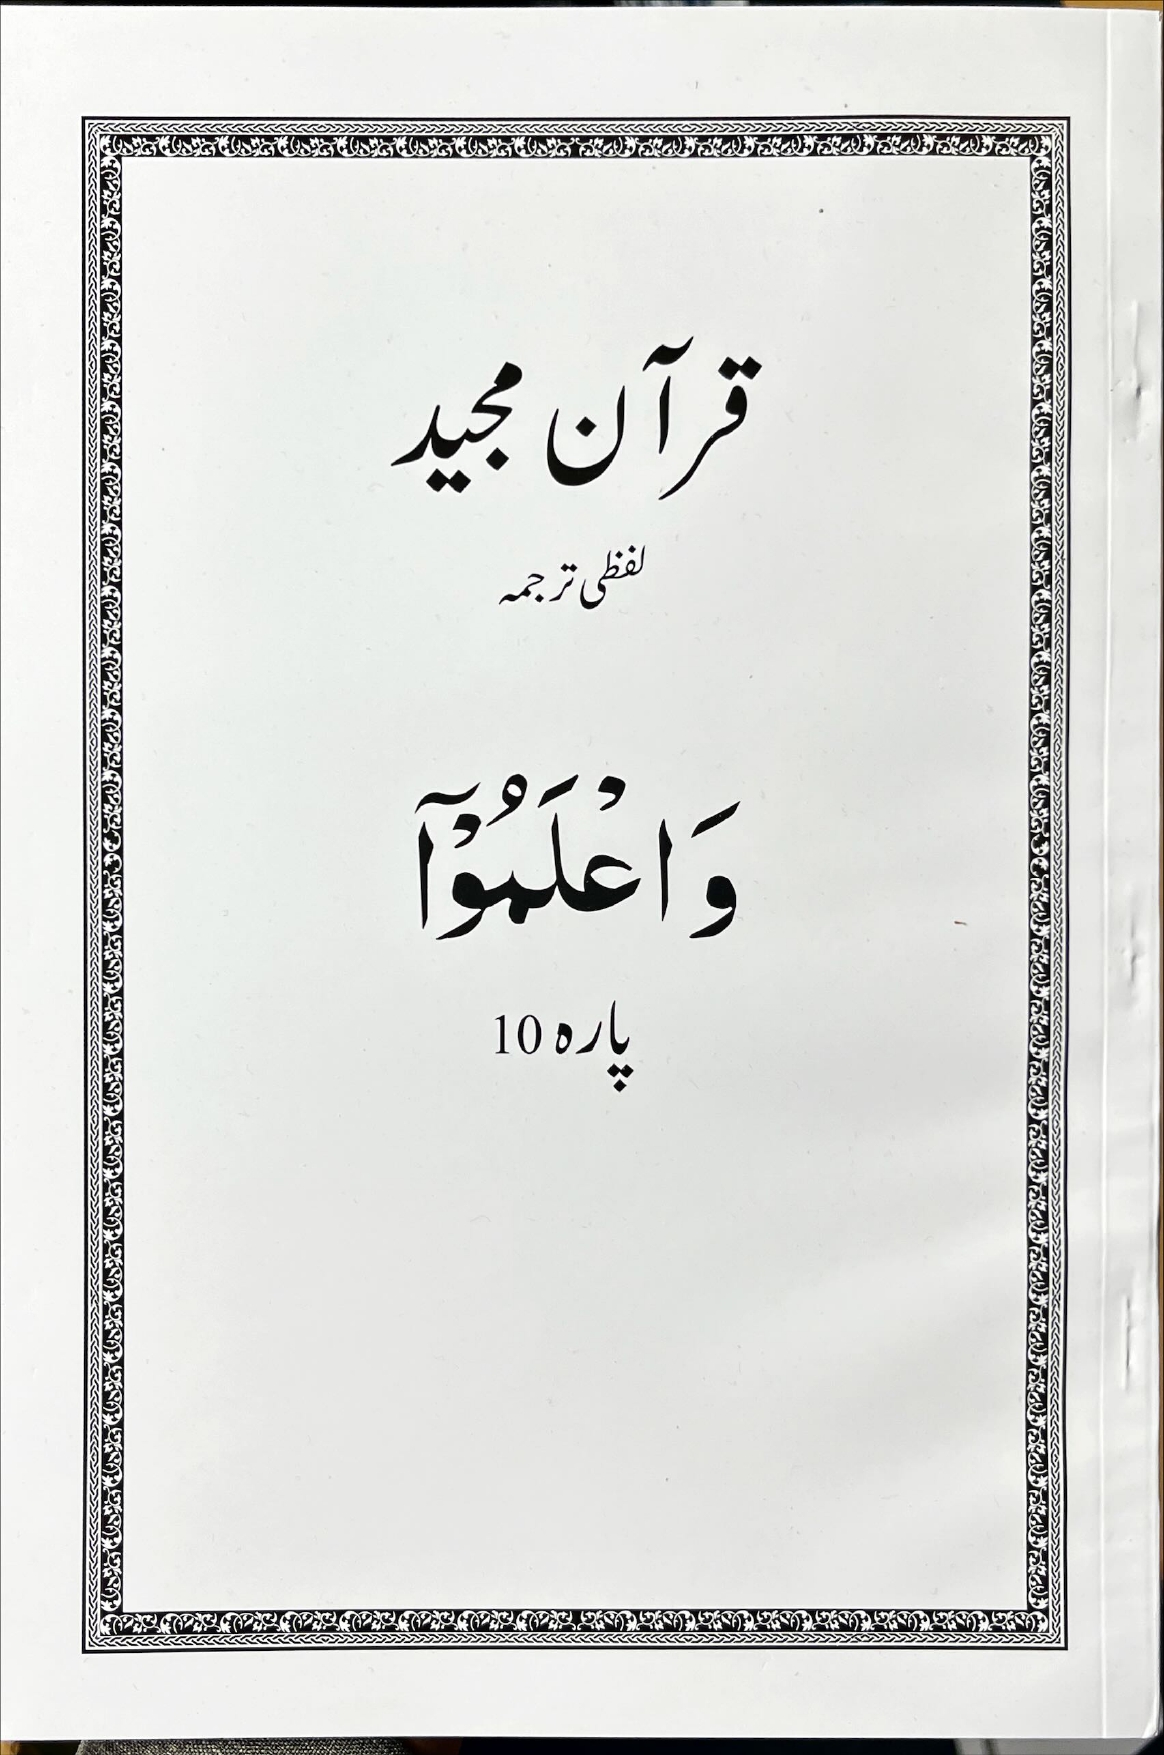 قرآن مجید
لفظی ترجمہ
وَاعْلَمُوْۤا
پارہ 10